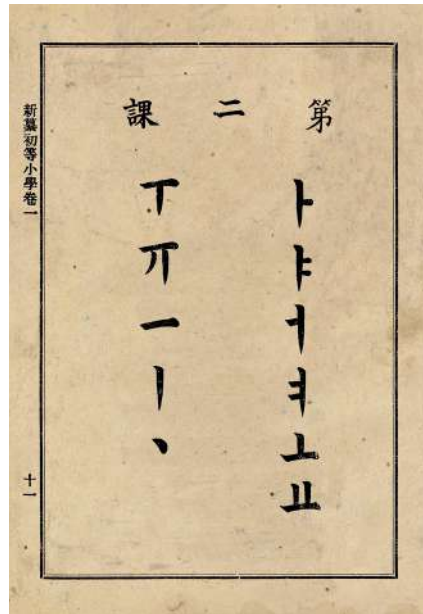 第二課
ㅏㅑㅓㅕㅗㅛ
ㅜㅠㅡㅣㆍ
新纂初等小學卷一
十一